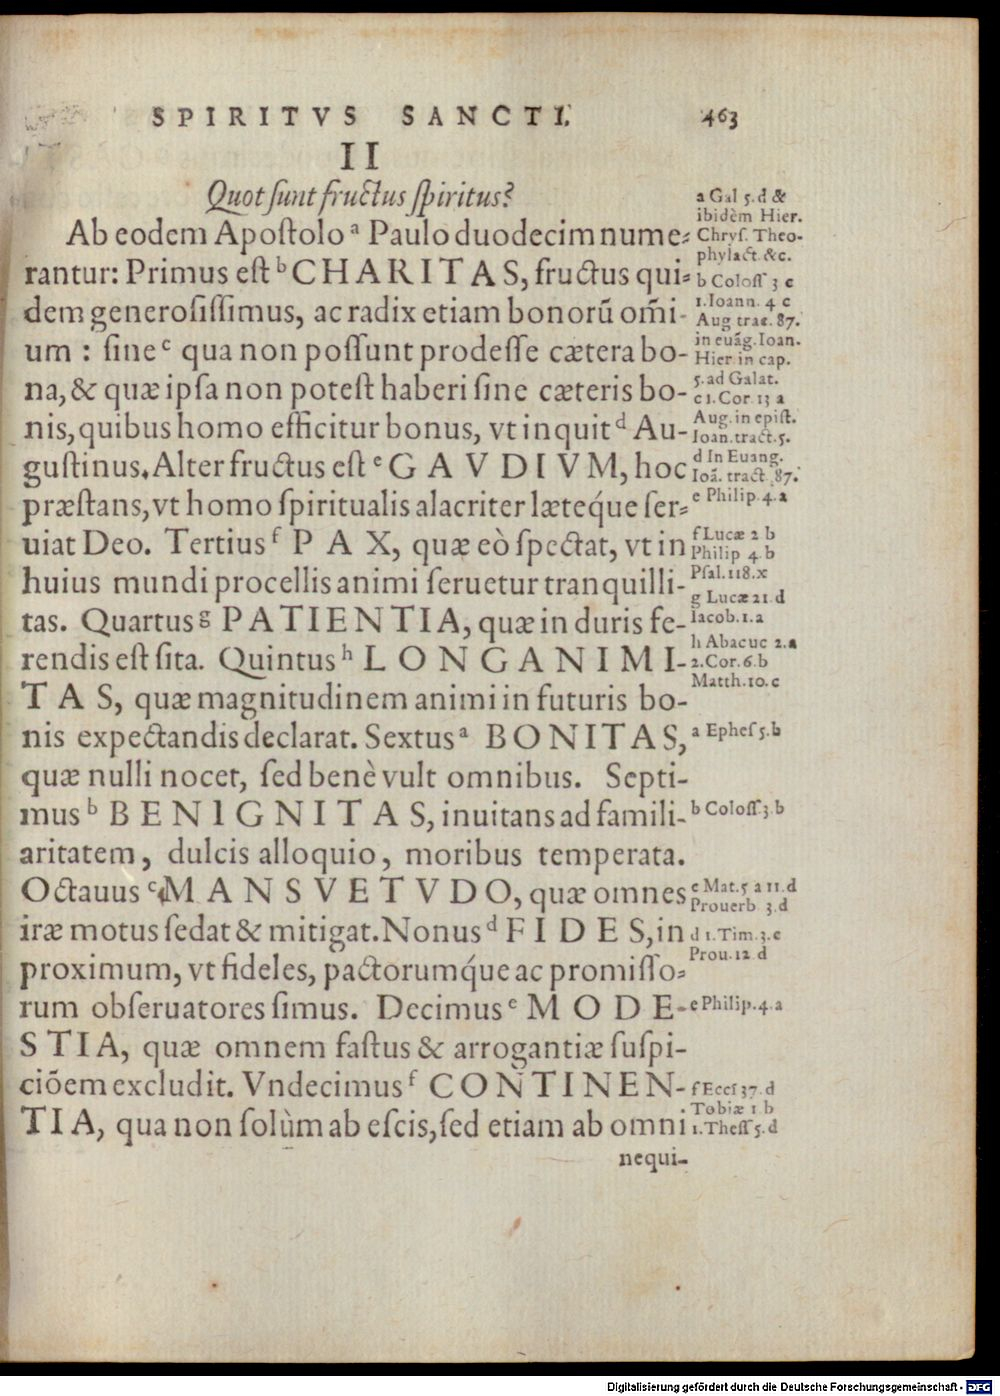 SPIRITVS SANCTI. 463
II
Quot sunt fructus spiritus?
Ab eodem Apostolo ª Paulo duodecim nume-
rantur: Primus est ᵇ CHARITAS, fructus qui-
dem generosissimus, ac radix etiam bonorū om̄i-
um : sine ᶜ qua non possunt prodesse cætera bo-
na, & quæ ipsa non potest haberi sine cæteris bo-
nis, quibus homo efficitur bonus, vt inquit ᵈ Au-
gustinus. Alter fructus est ᵉ GAVDIVM, hoc
præstans, vt homo spiritualis alacriter læteq́ue ser-
uiat Deo. Tertius ᶠ PAX, quæ eò spectat, vt in
huius mundi procellis animi seruetur tranquilli-
tas. Quartus ᵍ PATIENTIA, quæ in duris fe-
rendis est sita. Quintus ʰ LONGANIMI-
TAS, quæ magnitudinem animi in futuris bo-
nis expectandis declarat. Sextus ª BONITAS,
quæ nulli nocet, sed benè vult omnibus. Septi-
mus ᵇ BENIGNITAS, inuitans ad famili-
aritatem, dulcis alloquio, moribus temperata.
Octauus ᶜ MANSVETVDO, quæ omnes
iræ motus sedat & mitigat. Nonus ᵈ FIDES, in
proximum, vt fideles, pactorumq́ue ac promisso-
rum obseruatores simus. Decimus ᵉ MODE-
STIA, quæ omnem fastus & arrogantiæ suspi-
ciōem excludit. Vndecimus ᶠ CONTINEN-
TIA, qua non solùm ab escis, sed etiam ab omni
nequi-
a Gal 5. d &
ibidèm Hier.
Chrys. Theo-
phylact. &c.
b Coloss 3 c
1. Ioann. 4 c
Aug trac. 87.
in euāg. Ioan.
Hier in cap.
5. ad Galat.
c 1. Cor. 13 a
Aug. in epist.
Ioan. tract. 5.
d In Euang.
Ioā. tract. 87.
e Philip. 4. a
f Lucæ 2 b
Philip 4. b
Psal. 118. x
g Lucæ 21. d
Iacob. 1. a
h Abacuc 2. a
2. Cor. 6. b
Matth. 10. c
a Ephes 5. b
b Coloss. 3. b
c Mat. 5 a 11. d
Prouerb 3. d
d 1. Tim. 3. c
Prou. 12 d
e Philip. 4. a
f Eccl 37. d
Tobiæ 1. b
1. Thess 5. d
Digitalisierung gefördert durch die Deutsche Forschungsgemeinschaft - DFG